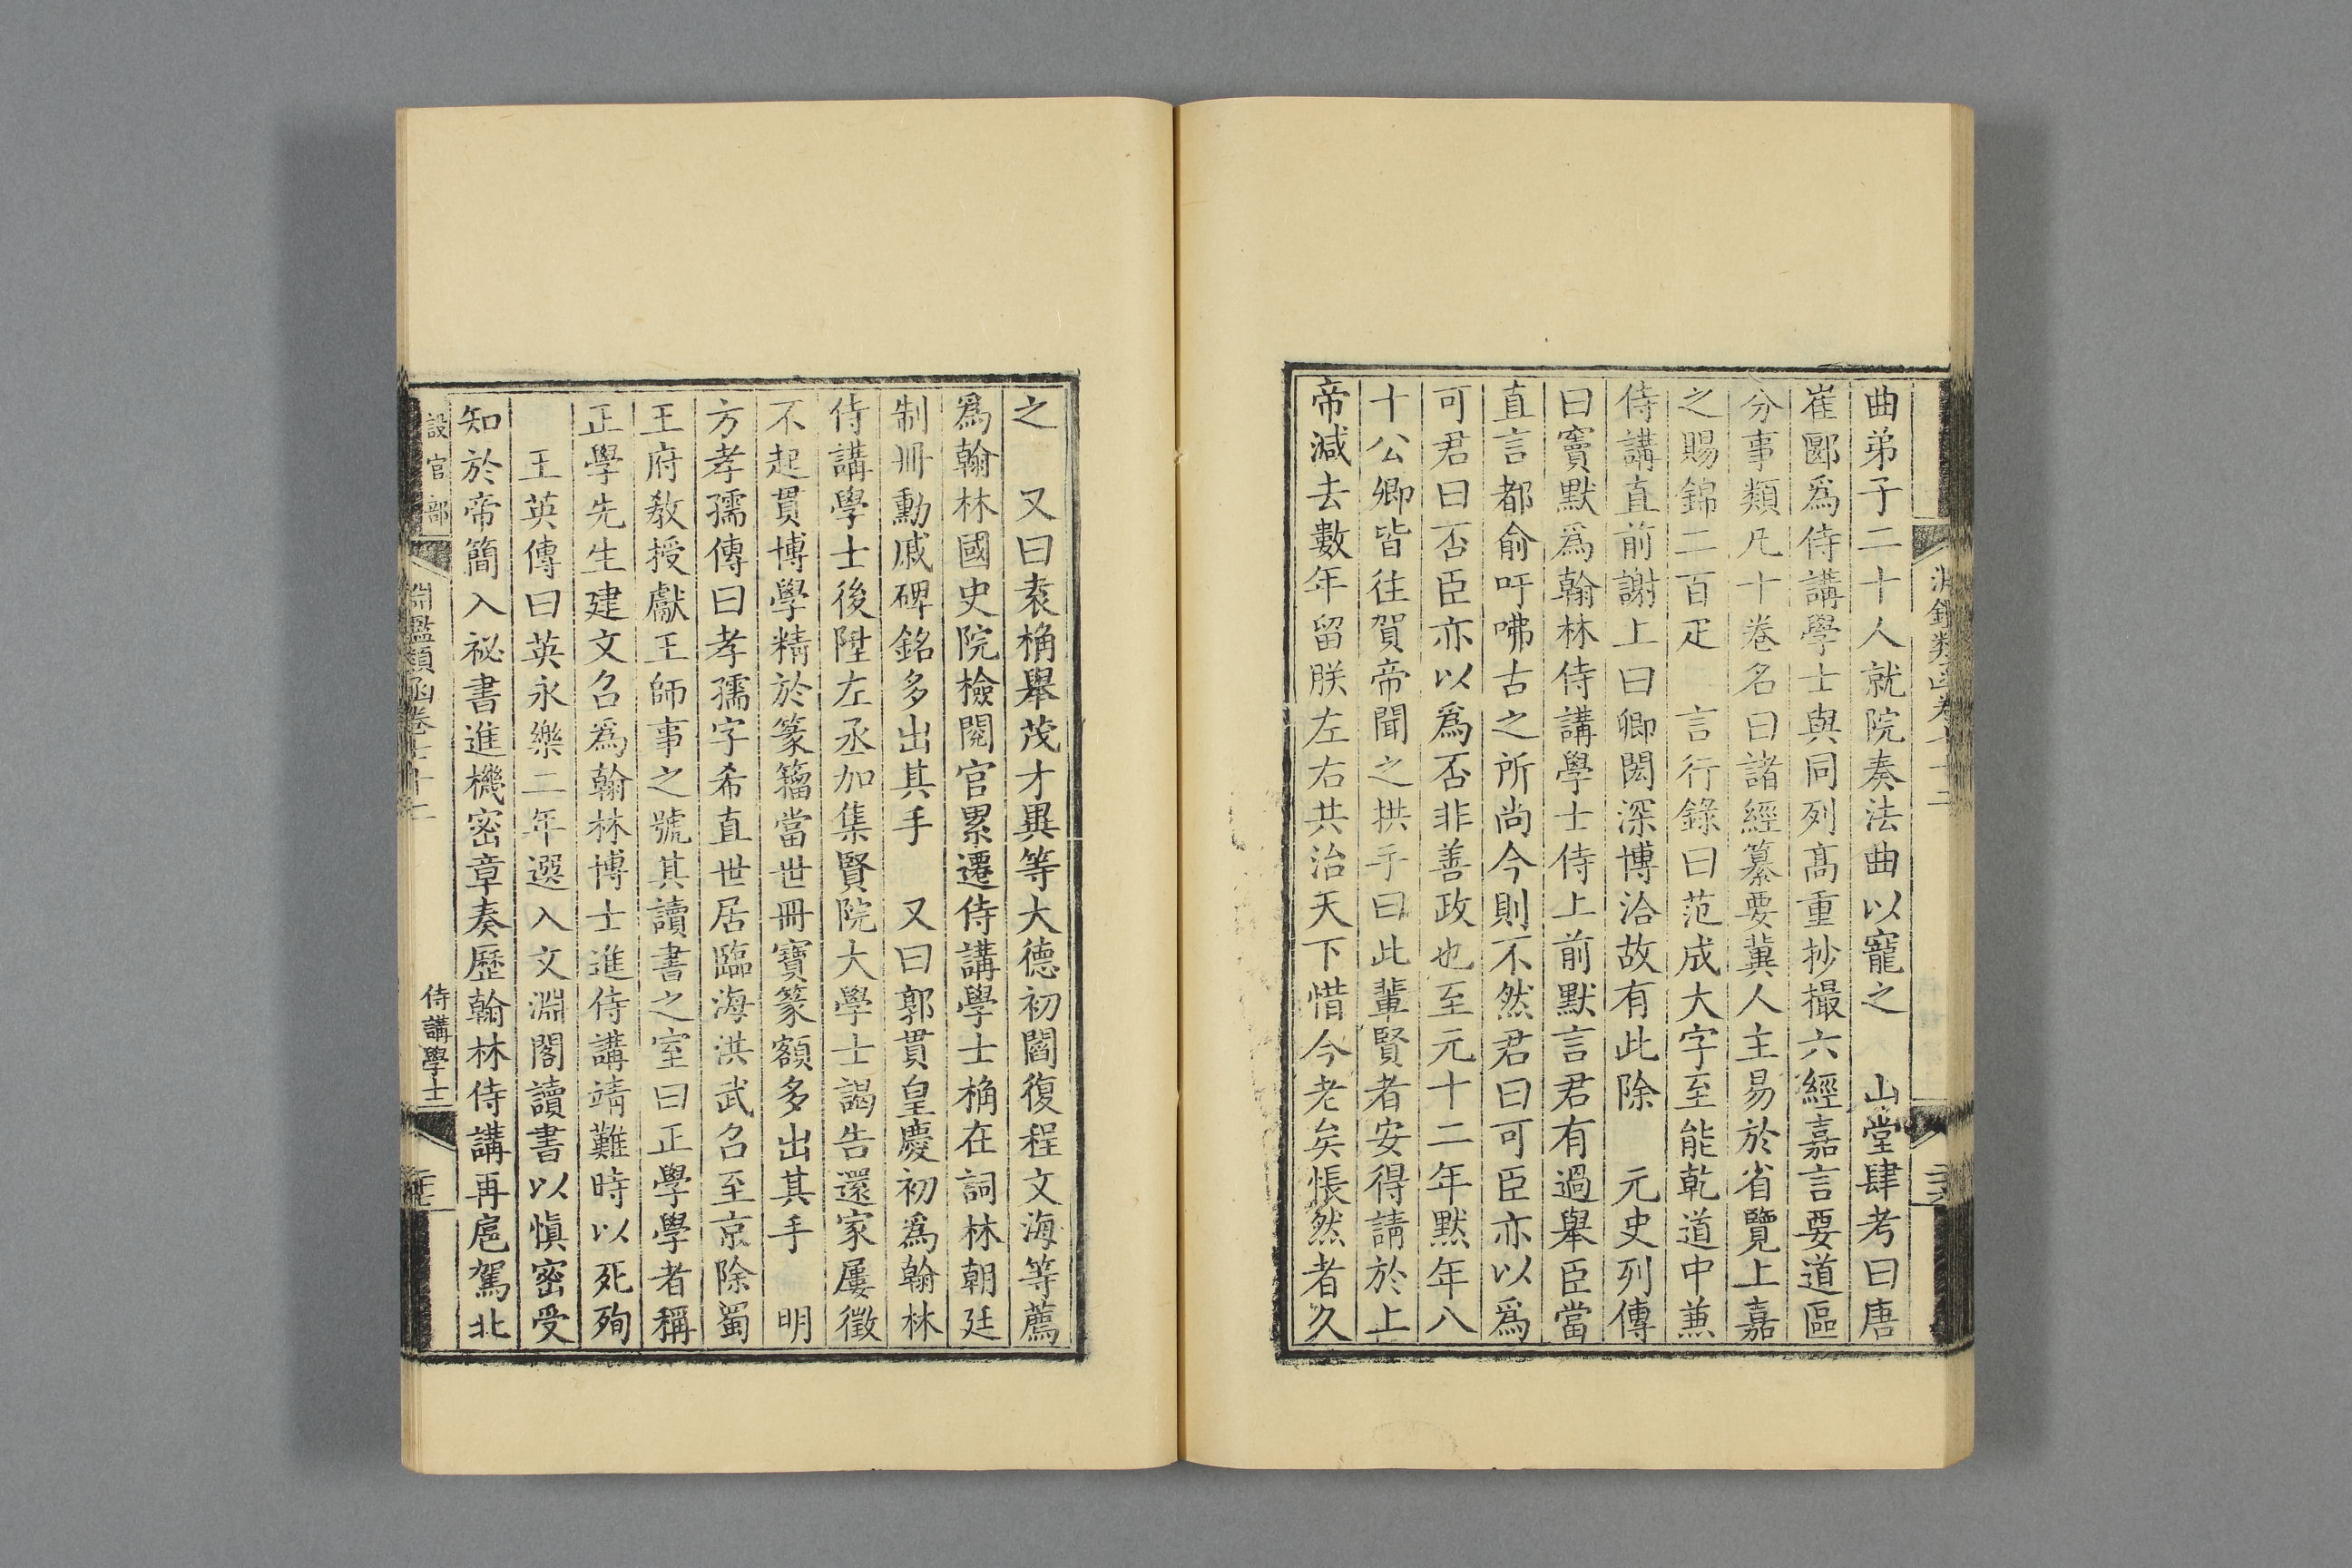 曲弟子二十人就院奏法曲以寵之　山堂肆考曰唐
崔郾爲侍講學士與同列髙重抄撮六經嘉言要道區
分事類凡十卷名曰諸經纂要冀人主易於省覽上嘉
之賜錦二百疋　言行錄曰范成大字至能乾道中兼
侍講直前謝上曰卿閎深博洽故有此除　元史列傳
曰竇默爲翰林侍講學士侍上前默言君有過舉臣當
直言都俞吁咈古之所尚今則不然君曰可臣亦以爲
可君曰否臣亦以爲否非善政也至元十二年默年八
十公卿皆往賀帝聞之拱手曰此輩賢者安得請於上
帝減去數年留朕左右共治天下惜今老矣悵然者久
之　又曰袁桷舉茂才異等大德初閻復程文海等薦
爲翰林國史院檢閱官累遷侍講學士桷在詞林朝廷
制冊勳戚碑銘多出其手　又曰郭貫皇慶初爲翰林
侍講學士後陞左丞加集賢院大學士謁告還家屢徵
不起貫博學精於篆籀當世冊寶篆額多出其手　明
方孝孺傳曰孝孺字希直世居臨海洪武召至京除蜀
王府教授獻王師事之號其讀書之室曰正學學者稱
正學先生建文召爲翰林博士進侍講靖難時以死殉
　王英傳曰英永樂二年選入文淵閣讀書以愼密受
知於帝簡入祕書進機密章奏歷翰林侍講再扈駕北
設官部
淵鑑類函卷七十二
侍講學士